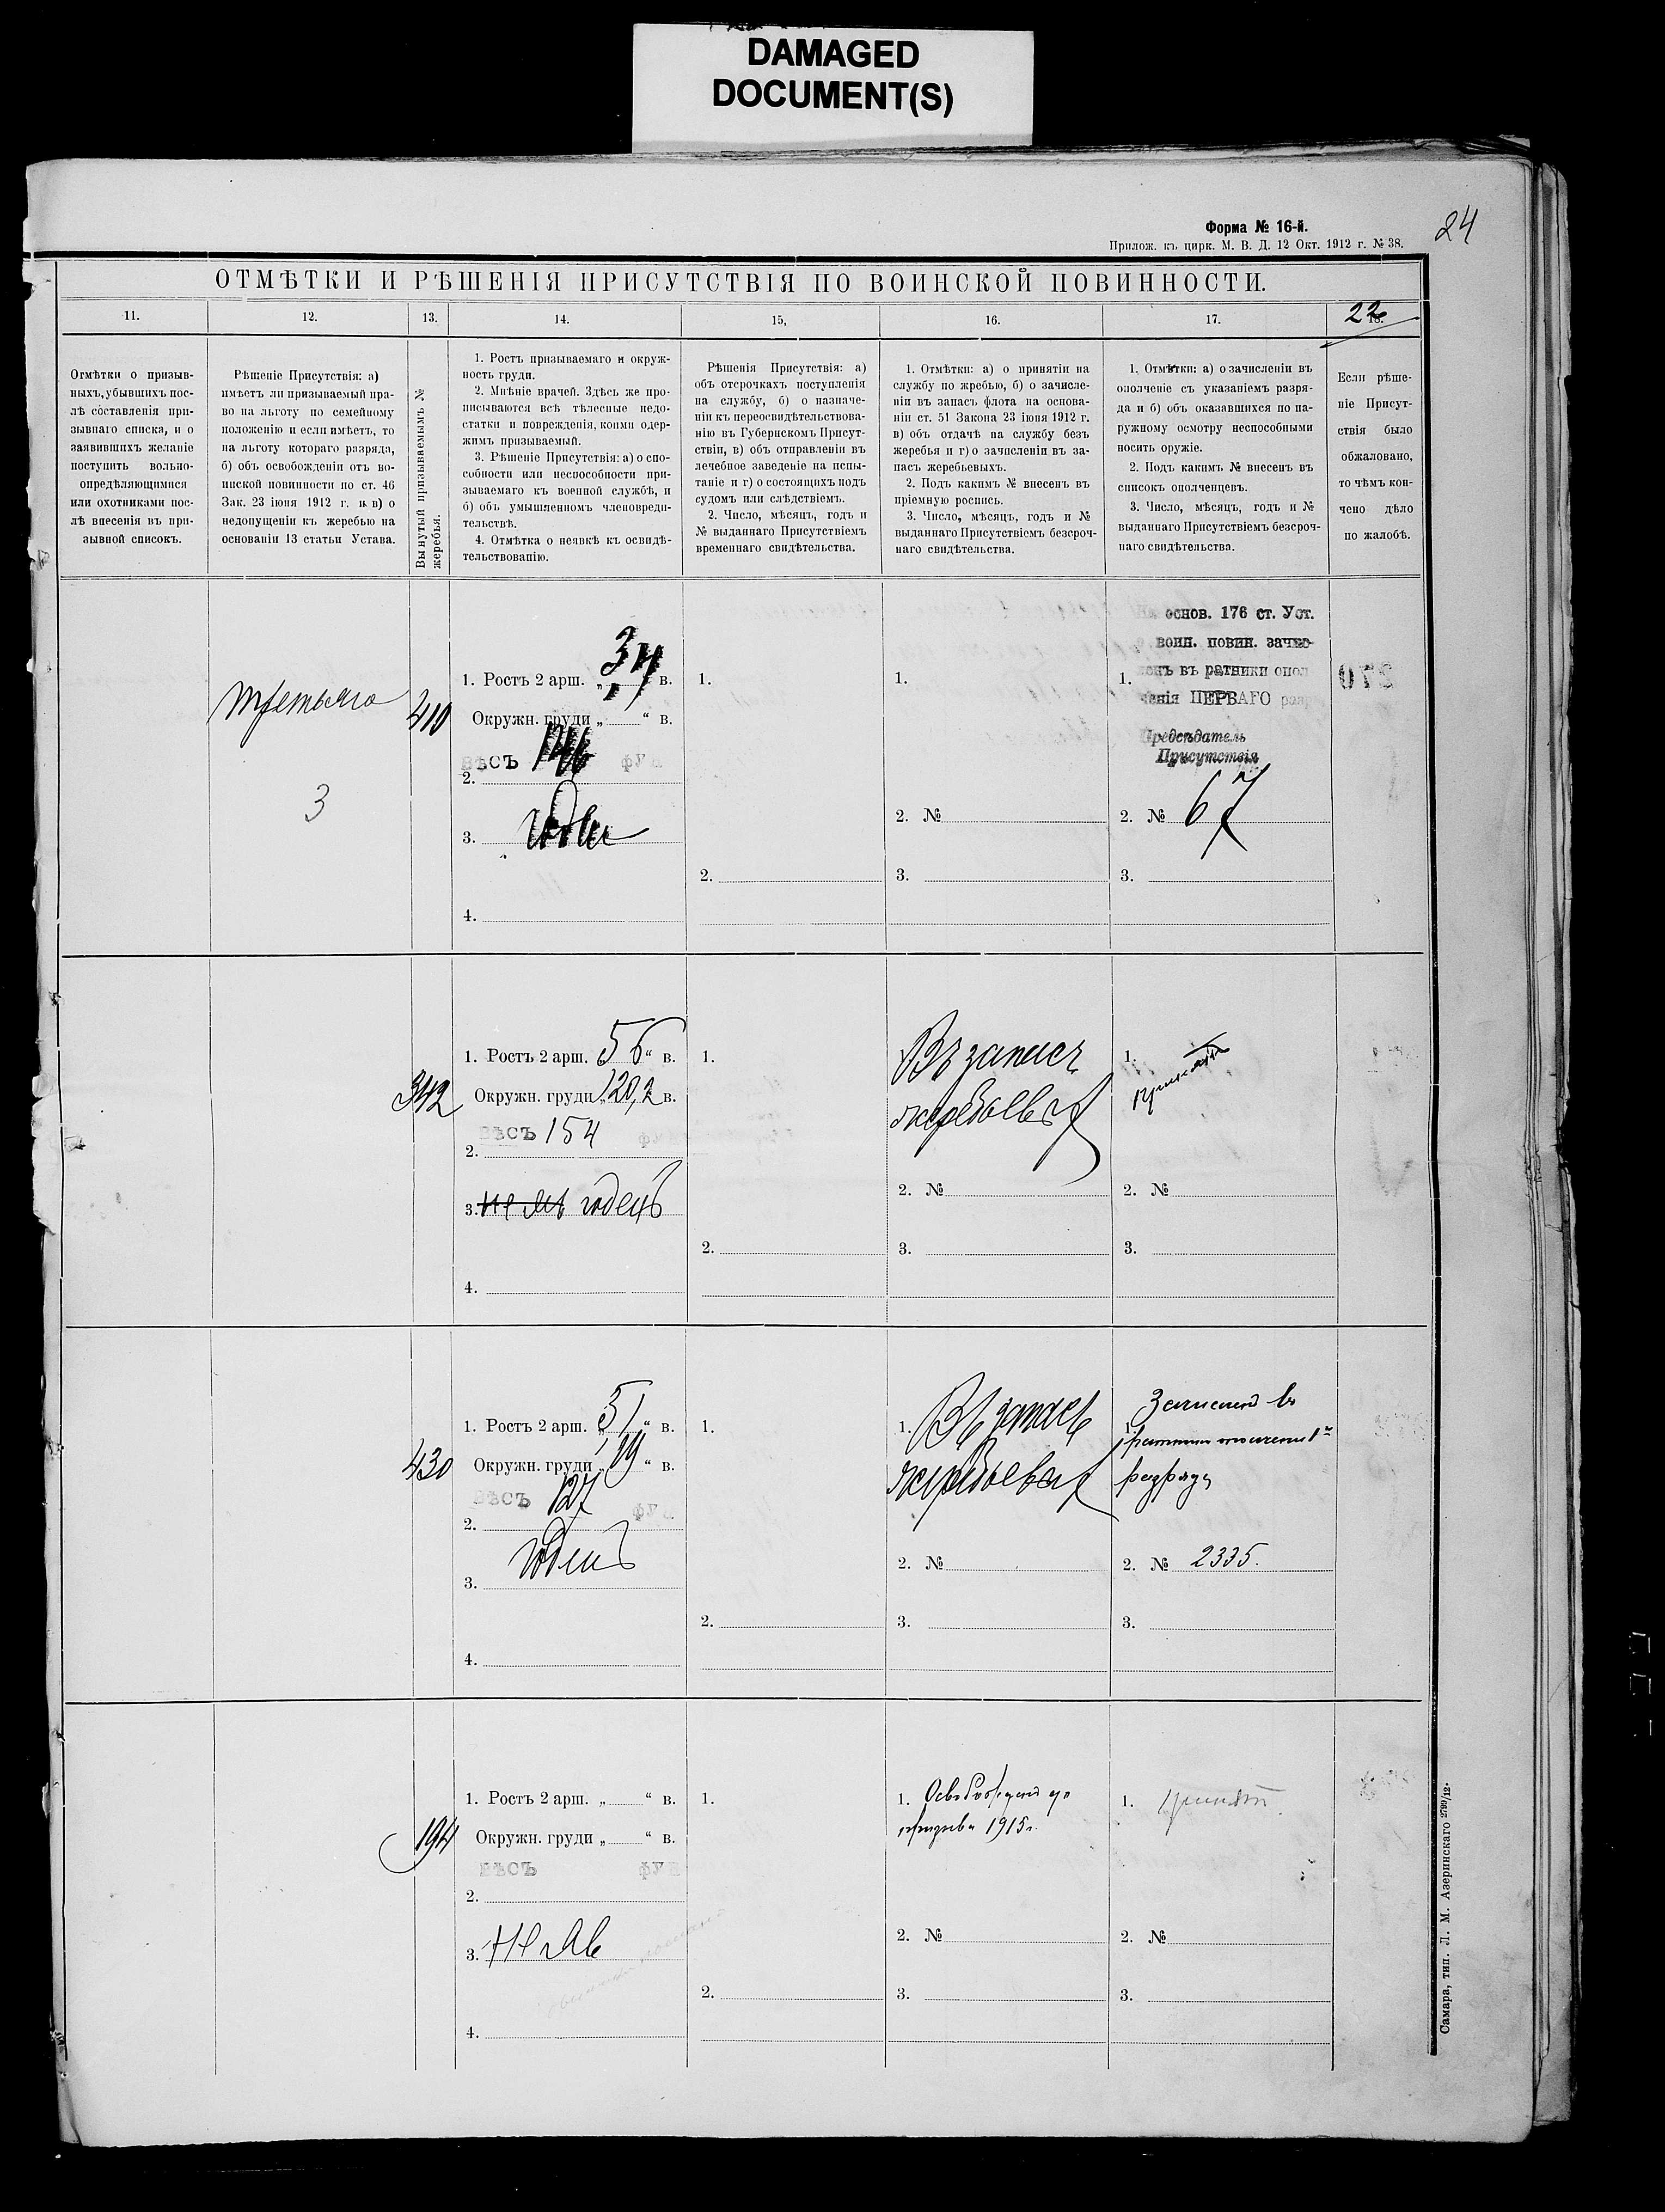 DAMAGED
DOCUMENT(S)
Форма № 16-й.
Прилож. къ цирк. М. В. Д. 12 Окт. 1912 г. № 38.
24
ОТМѢТКИ И РѢШЕНІЯ ПРИСУТСТВІЯ ПО ВОИНСКОЙ ПОВИННОСТИ.
11.
12.
13.
14.
15,
16.
17.
18.
22
Отмѣтки о призыв-
ныхъ, убывшихъ пос-
лѣ составленія при-
зывнаго списка, и о
заявившихъ желаніе
поступить вольно-
опредѣляющимися
или охотниками пос-
лѣ внесенія въ при-
зывной списокъ.
Рѣшеніе Присутствія: а)
имѣетъ ли призываемый пра-
во на льготу по семейному
положенію и если имѣетъ, то
на льготу котораго разряда,
б) объ освобожденіи отъ во-
инской повинности по ст. 46
Зак. 23 іюня 1912 г. и в) о
недопущеніи къ жеребью на
основаніи 13 статьи Устава.
Вынутый призываемымъ №
жеребья.
1. Ростъ призываемаго и окруж-
ность груди.
2. Мнѣніе врачей. Здѣсь же про-
писываются всѣ тѣлесные недо-
статки и поврежденія, коими одер-
жимъ призываемый.
3. Рѣшеніе Присутствія: а) о спо-
собности или неспособности при-
зываемаго къ военной службѣ, и
б) объ умышленномъ членовреди-
тельствѣ.
4. Отмѣтка о неявкѣ къ освидѣ-
тельствованію.
Рѣшенія Присутствія: а)
объ отсрочкахъ поступленія
на службу, б) о назначе-
ніи къ переосвидѣтельствова-
нію въ Губернскомъ Присут-
ствіи, в) объ отправленіи въ
лечебное заведеніе на испы-
таніе и г) о состоящихъ подъ
судомъ или слѣдствіемъ.
2. Число, мѣсяцъ, годъ и
№ выданнаго Присутствіемъ
временнаго свидѣтельства.
1. Отмѣтки: а) о принятіи на
службу по жребью, б) о зачисле-
ніи въ запасъ флота на основа-
ніи ст. 51 Закона 23 іюня 1912 г.
в) объ отдачѣ на службу безъ
жеребья и г) о зачисленіи въ за-
пасъ жеребьевыхъ.
2. Подъ какимъ № внесенъ въ
пріемную роспись.
3. Число, мѣсяцъ, годъ и №
выданнаго Присутствіемъ безсроч-
наго свидѣтельства.
1. Отмѣтки: а) о зачисленіи въ
ополченіе съ указаніемъ разря-
да и б) объ оказавшихся по на-
ружному осмотру неспособными
носить оружіе.
2. Подъ какимъ № внесенъ въ
списокъ ополченцевъ.
3. Число, мѣсяцъ, годъ и №
выданнаго Присутствіемъ безсроч-
наго свидѣтельства.
Если рѣше-
ніе Присут-
ствія было
обжаловано,
то чѣмъ кон-
чено дѣло
по жалобѣ.
третьяго
3
410
1. Ростъ 2 арш. „ 3 " в.
Окружн. груди „ " в.
ВѢСЪ 146 ФУН
2.
3.
4.
1.
2.
1.
2. №
3.
основ. 176 ст. Уст.
воин. повин. зачис-
1. ленъ въ ратники опол
ченія ПЕРВАГО раз
Предсѣдатель
Присутствія
2. № 67
3.
342
1. Ростъ 2 арш. „ 5 6 " в.
Окружн. груди „ 20,2 в.
ВѢСЪ 154 Ф
2.
3. годенъ
4.
1.
2.
Въ запасъ
жеребьевых
2. №
3.
1. принятъ
2. №
3.
430
1. Ростъ 2 арш. „ 5 " в.
Окружн. груди „ 19 " в.
ВѢСЪ 127 ФУН
2.
3. годенъ
4.
1.
2.
1. Въ запасъ
жеребьевых
2. №
3.
Зачисленъ въ
1. ратники ополченія 1го
разряда
2. № 2335.
3.
194
1. Ростъ 2 арш. „ " в.
Окружн. груди „ " в.
ВѢСЪ ФУН
2.
3. Не яв
4.
1.
2.
1. Освобожденъ до
призыва 1915 г.
2. №
3.
1. принятъ
2. №
3.
Самара, тип. Л. М. Азеринскаго 2790/12.